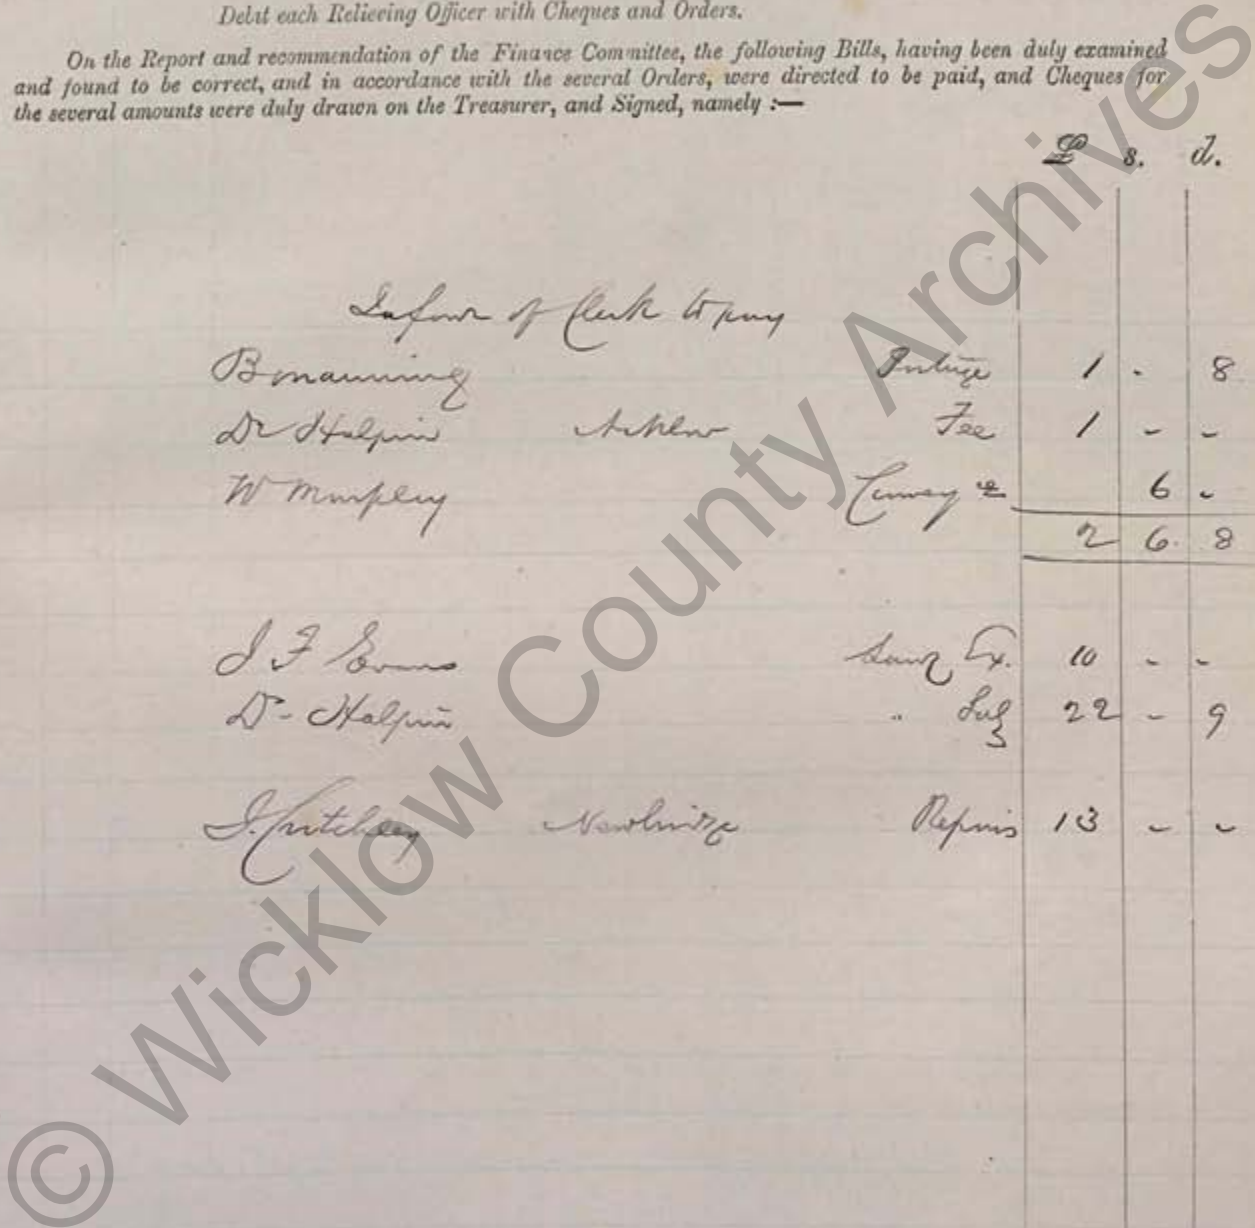 Debit each Relieving Officer with Cheques and Orders.
On the Report and recommendation of the Finance Committee, the following Bills, having been duly examined
and found to be correct, and in accordance with the several Orders, were directed to be paid, and Cheques for
the several amounts were duly drawn on the Treasurer, and Signed, namely :—
£ s. d.
In favour of Clerk to pay
B Manning 1 - 8
Dr Halpin Arklow Fee 1 - -
W Murphy 6 -
2 6 8
J F Evans Sany Ex. 10 - -
Dr Halpin " Saly 22 - 9
J. Critchley Newbridge Repairs 13 - -
© Wicklow County Archives